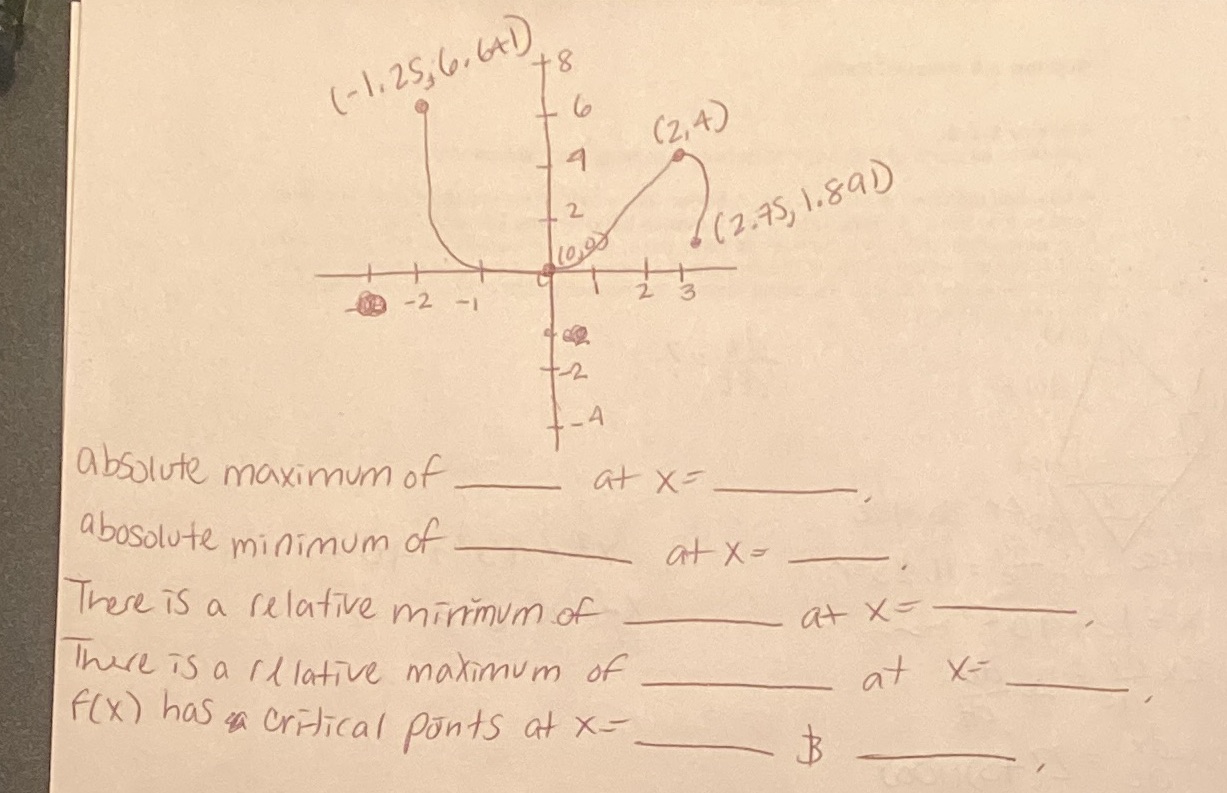 (-1.25, 6.641)
8
6
(2,4)
4
(2.75, 1.891)
2
(0,0)
-2 -1 1 2 3
-2
-4
absolute maximum of ____ at x= ____.
abosolute minimum of ____ at x= ____.
There is a relative minimum of ____ at x= ____.
There is a relative maximum of ____ at x= ____.
f(x) has a critical points at x= ____ & ____.